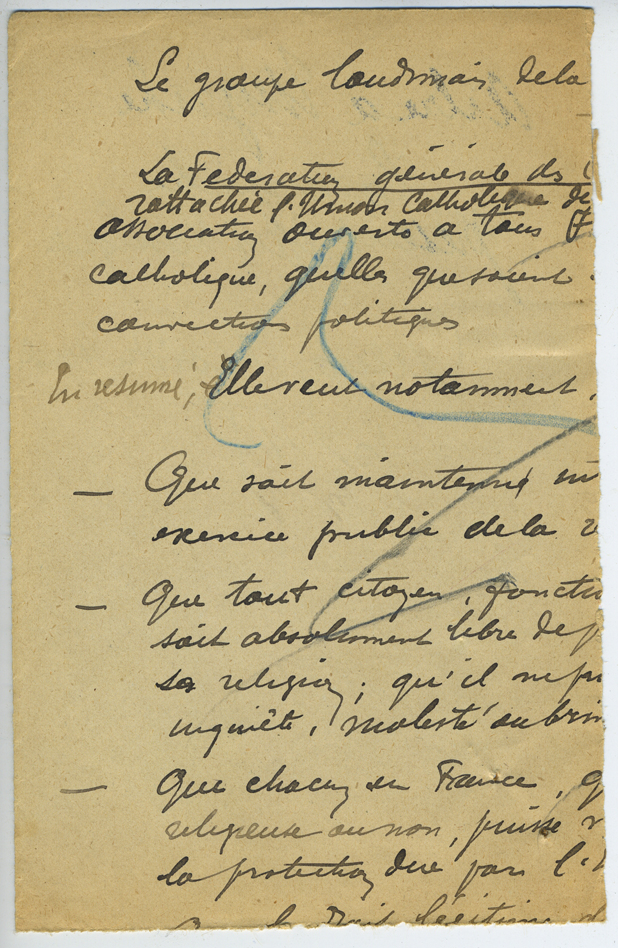 Le groupe loudunais de la
La Federation générale des
rattachée l'Union Catholique de
association ouverte à tous
catholique, quelles que soient
convictions politiques
En resumé, Elle veut notamment
— Que soit maintenu
exercice public de la
— Que tout citoyen, foncti
soit absolument libre de p
sa religion ; qu'il ne pu
inquiété, molesté ou brim
— Que chacun en France, q
religieuse ou non, puisse r
la protection due par l'
droit légitime d